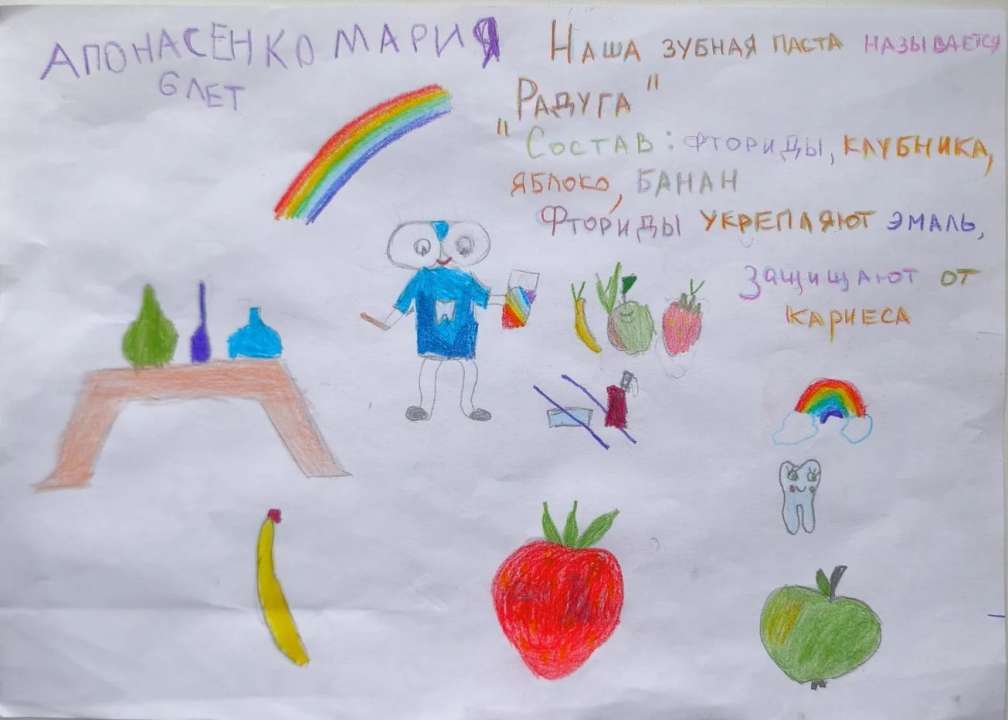 АПОНАСЕНКО МАРИЯ
6 ЛЕТ
НАША ЗУБНАЯ ПАСТА НАЗЫВАЕТСЯ
"РАДУГА"
СОСТАВ: ФТОРИДЫ, КЛУБНИКА,
ЯБЛОКО, БАНАН
ФТОРИДЫ УКРЕПЛЯЮТ ЭМАЛЬ,
ЗАЩИЩАЮТ ОТ
КАРИЕСА